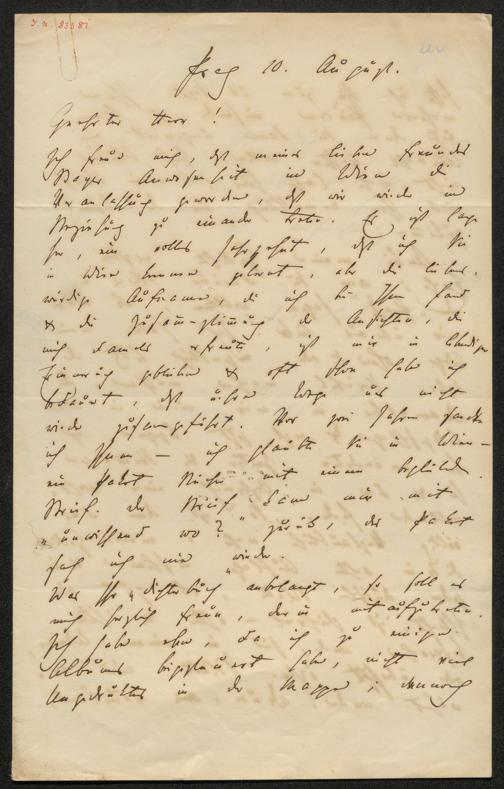 J. N. 83587
Prag 10. August.
Geehrter Herr!
Ich freue mich, daß meines lieben Freundes
Bayer Anwesenheit in Wien die
Veranlassung geworden, daß wir wieder in
Beziehung zu einander treten. Es ist lange
her, ein volles Jahrzehnt, daß ich Sie
in Wien kennen gelernt, aber die liebens-
würdige Aufname, die ich bei Ihnen fand
& die Zusam̄enstim̄ung der Ansichten, die
mich damals erfreute, ist mir in lebendigem
Eindruck geblieben & oft schon habe ich
bedauert, daß unsere Wege uns nicht
wieder zusam̄engeführt. Vor zwei Jahren sandte
ich Ihnen — ich glaubte Sie in Wien —
ein Paket Bücher mit einem begleitenden
Brief. Der Brief kam mir mit
„unwissend wo?" zurück, das Paket
sah ich nie wieder.
Was Ihr „Dichterbuch" anbelangt, so soll es
mich herzlich freuen, darin mit aufzutreten.
Ich habe eben, da ich zu einigen
Albums beigesteuert habe, nicht viel
Ungedrucktes in der Mappe; dennoch